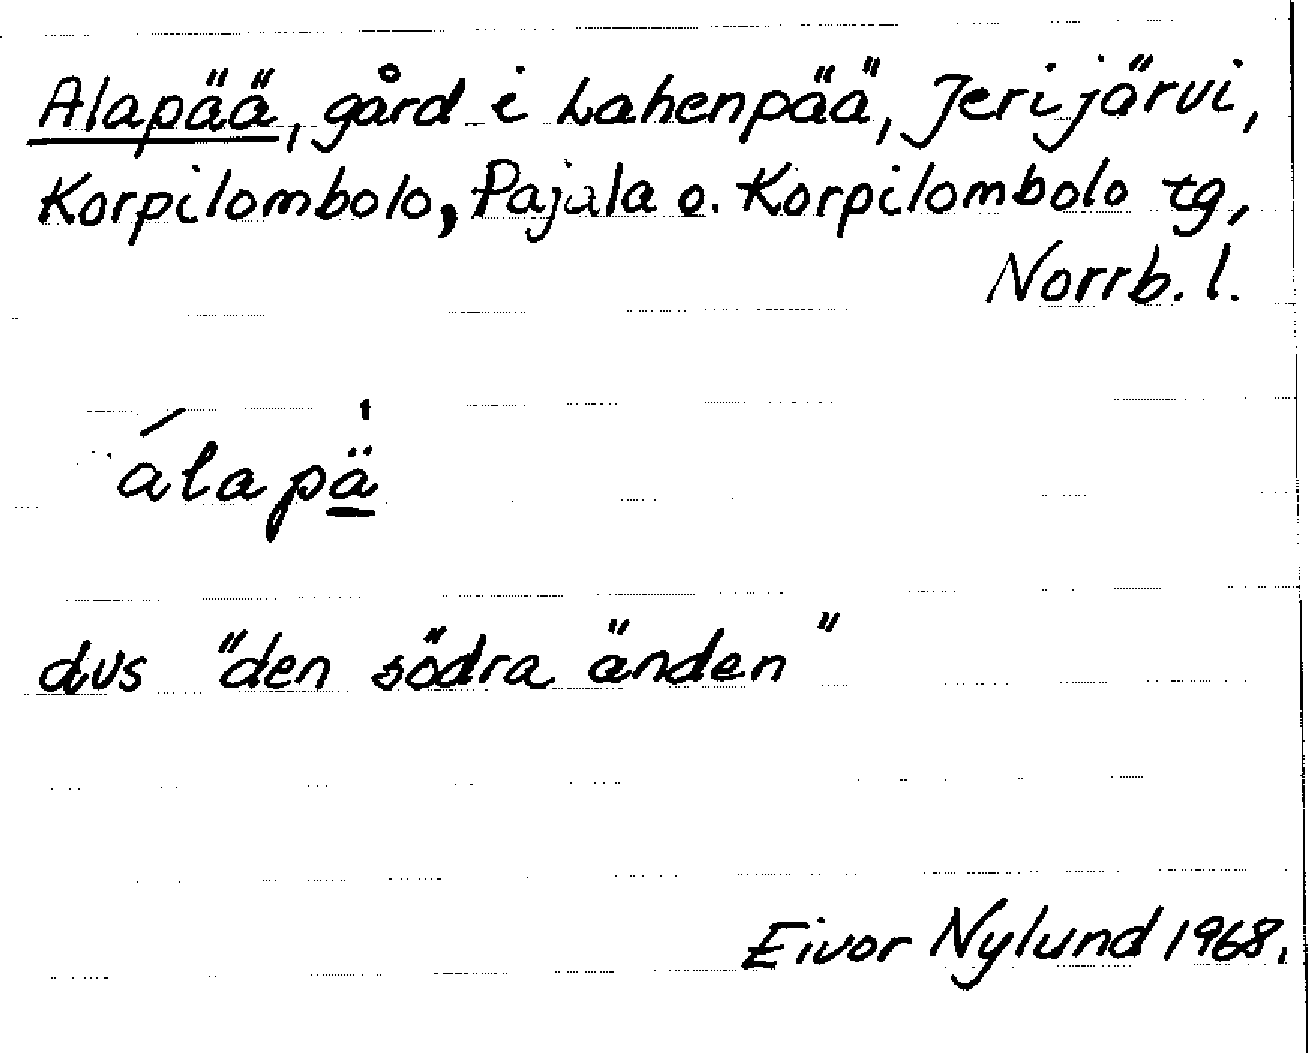 Alapää, gård i Lahenpää, Jerijärvi,
Korpilombolo, Pajala o. Korpilombolo tg,
Norrb. l.
álapä̱
dvs "den södra änden"
Eivor Nylund 1968.